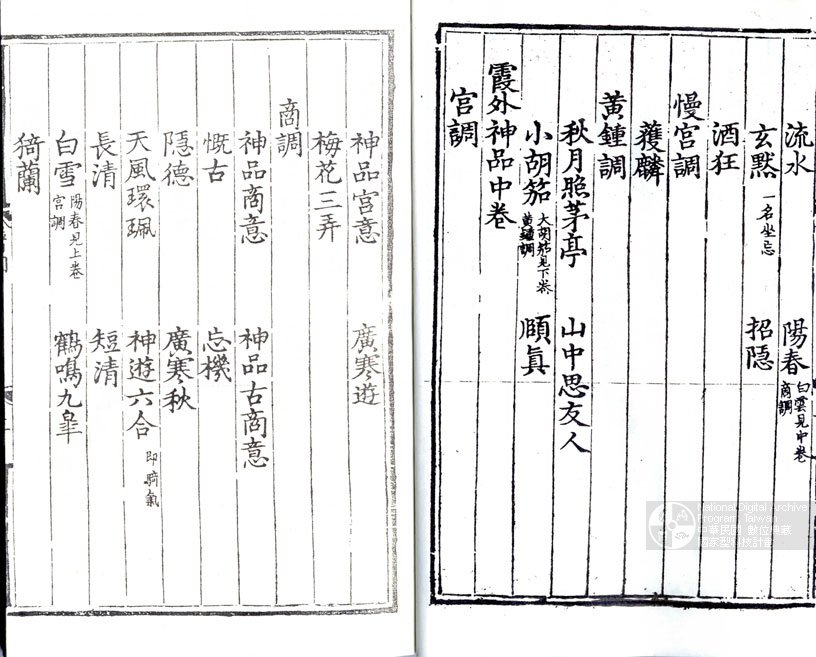 流水 陽春 白雲見中卷商調
玄默 一名坐忘 招隱
酒狂
慢宮調
蒦麟
黃鍾調
秋月照茅亭 山中思友人
小胡笳 大胡笳見下卷黃鍾調 頤眞
霞外神品中卷
宮調
神品宮意 廣寒遊
梅花三弄
商調
神品商意 神品古商意
慨古 忘機
隱德 廣寒秋
天風環珮 神遊六合 即騎氣
長清 短清
白雪 陽春見上卷宮調 鶴鳴九皋
猗蘭
National Digital Archive
Program Taiwan
中華民國 數位典藏
國家型科技計畫